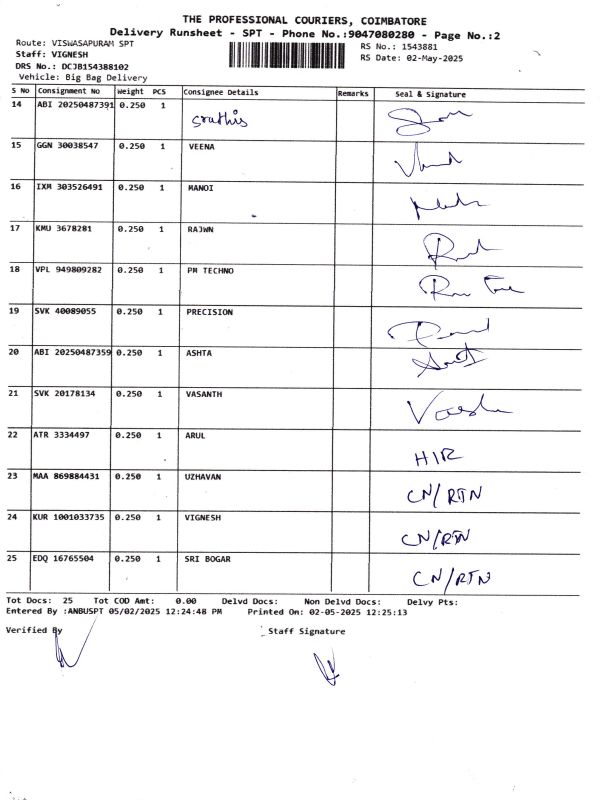 THE PROFESSIONAL COURIERS, COIMBATORE
Delivery Runsheet - SPT - Phone No.:9047080280 - Page No.:2
Route: VISWASAPURAM SPT
Staff: VIGNESH
DRS No.: DCJB154388102
Vehicle: Big Bag Delivery
RS No.: 1543881
RS Date: 02-May-2025
S No Consignment No Weight PCS Consignee Details Remarks Seal & Signature
14 ABI 20250487391 0.250 1
15 GGN 30038547 0.250 1 VEENA
16 IXM 303526491 0.250 1 MANOI
17 KMU 3678281 0.250 1 RAJWN
18 VPL 949809282 0.250 1 PM TECHNO
19 SVK 40089055 0.250 1 PRECISION
20 ABI 20250487359 0.250 1 ASHTA
21 SVK 20178134 0.250 1 VASANTH
22 ATR 3334497 0.250 1 ARUL HIR
23 MAA 869884431 0.250 1 UZHAVAN CN/RTN
24 KUR 1001033735 0.250 1 VIGNESH CN/RTN
25 EDQ 16765504 0.250 1 SRI BOGAR CN/RTN
Tot Docs: 25 Tot COD Amt: 0.00 Delvd Docs: Non Delvd Docs: Delvy Pts:
Entered By :ANBUSPT 05/02/2025 12:24:48 PM Printed On: 02-05-2025 12:25:13
Verified By Staff Signature